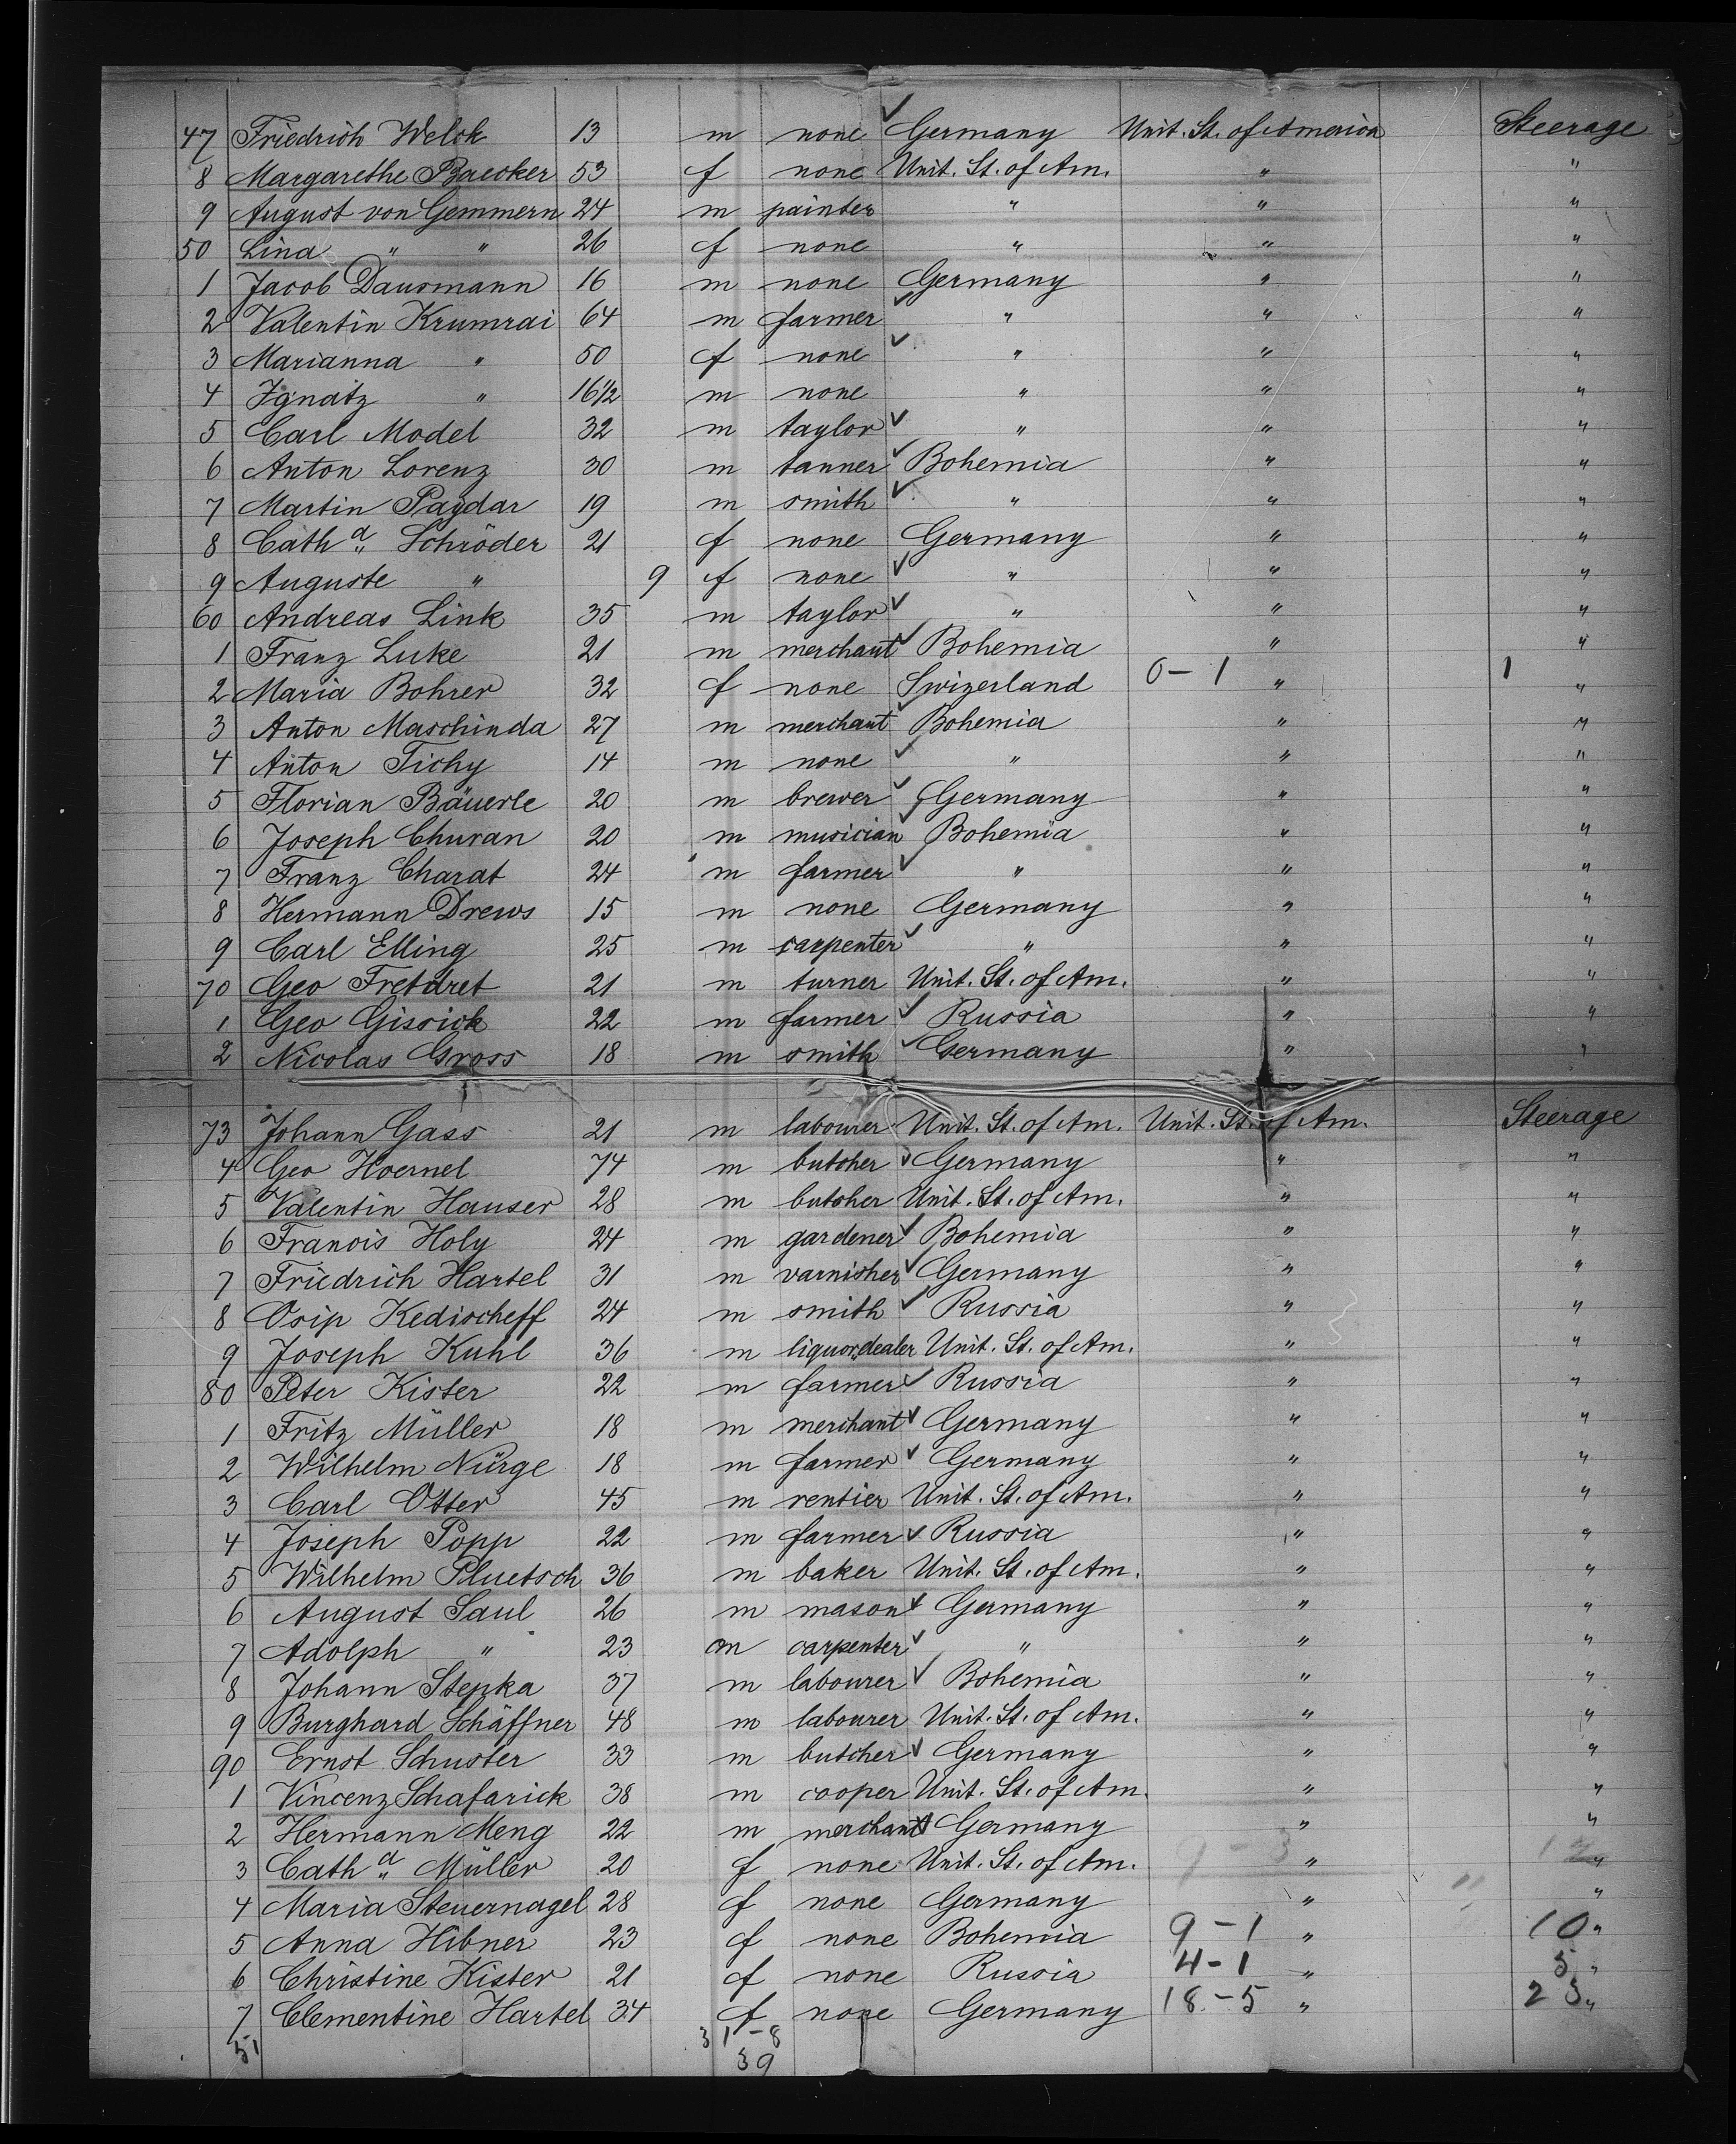 47 Friedrich Welck 13 m none ✓ Germany Unit. St. of America Steerage
8 Margarethe Baecker 53 f none Unit. St. of Am. " "
9 August von Gemmern 24 m painter " " "
50 Lina " " 26 f none " " "
1 Jacob Dausmann 16 m none Germany " "
2 Valentin Krumrai 64 m farmer ✓ " " "
3 Marianna " 50 f none ✓ " " "
4 Ignatz " 16 1/2 m none " " "
5 Carl Model 32 m taylor ✓ " " "
6 Anton Lorenz 30 m tanner ✓ Bohemia " "
7 Martin Paydar 19 m smith ✓ " " "
8 Cath a " Schröder 21 f none Germany " "
9 Auguste " 9 f none ✓ " " "
60 Andreas Link 35 m taylor ✓ " " "
1 Franz Luke 21 m merchant ✓ Bohemia " "
2 Maria Bohrer 32 f none Swizerland 0-1 " 1 "
3 Anton Maschinda 27 m merchant ✓ Bohemia " "
4 Anton Tichy 14 m none ✓ " " "
5 Florian Bäuerle 20 m brewer ✓ Germany " "
6 Joseph Churan 20 m musician ✓ Bohemia " "
7 Franz Charat 24 m farmer ✓ " " "
8 Hermann Drews 15 m none Germany " "
9 Carl Elling 25 m carpenter ✓ " " "
70 Geo Fretdret 21 m turner Unit. St. of Am. " "
1 Geo Gissick 22 m farmer ✓ Russia " "
2 Nicolas Gross 18 m smith ✓ Germany " "
73 Johann Gass 21 m labourer Unit. St. of Am. Unit. St. of Am. Steerage
4 Geo Hoernel 74 m butcher ✓ Germany " "
5 Valentin Hauser 28 m butcher Unit. St. of Am. " "
6 Francis Holy 24 m gardener ✓ Bohemia " "
7 Friedrich Hartel 31 m varnisher ✓ Germany " "
8 Osip Kedischeff 24 m smith ✓ Russia " "
9 Joseph Kuhl 36 m liquordealer Unit. St. of Am. " "
80 Peter Kister 22 m farmer ✓ Russia " "
1 Fritz Müller 18 m merchant ✓ Germany " "
2 Wilhelm Nürge 18 m farmer ✓ Germany " "
3 Carl Otter 45 m rentier Unit. St. of Am. " "
4 Joseph Popp 22 m farmer ✓ Russia " "
5 Wilhelm Pluetsch 36 m baker Unit. St. of Am. " "
6 August Saul 26 m mason ✓ Germany " "
7 Adolph " 23 m carpenter ✓ " " "
8 Johann Stepka 37 m labourer ✓ Bohemia " "
9 Burghard Schäffner 48 m labourer Unit. St. of Am. " "
90 Ernst Schuster 33 m butcher ✓ Germany " "
1 Vincenz Schafarick 38 m cooper Unit. St. of Am. " "
2 Hermann Meng 22 m merchant ✓ Germany " "
3 Cath a " Müller 20 f none Unit. St. of Am. " "
4 Maria Steuernagel 28 f none Germany " "
5 Anna Hibner 23 f none Bohemia 9-1 " 10 "
6 Christine Kister 21 f none Russia 4-1 " 5 "
7 Clementine Hartel 34 f none Germany 18-5 " 23 "
51 31-8
39